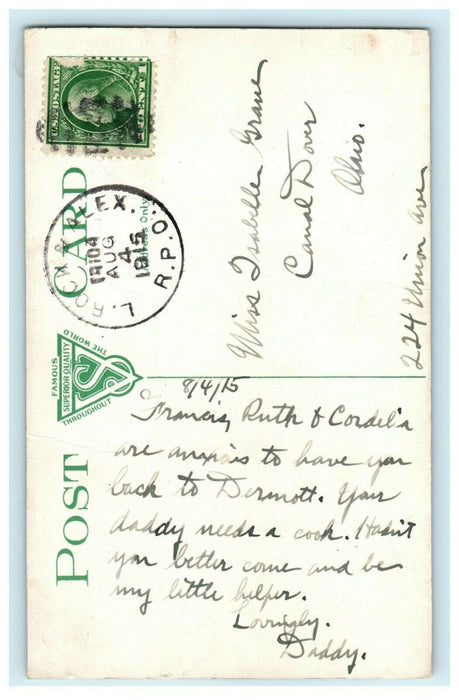 U.S. POSTAGE
1 CENT 1
L. ROCK & ALEX.
TR 104
AUG
4
1915
R.P.O.
POST CARD
Address Only
FAMOUS
THROUGHOUT
THE WORLD
SUPERIOR QUALITY
Miss Isabelle Grave
Canal Dover
Ohio.
224 Union ave
8/4/15
Francis, Ruth & Cordelia
are anxious to have you
back to Dermott. Your
daddy needs a cook. Hadn't
you better come and be
my little helper.
Lovingly.
Daddy.